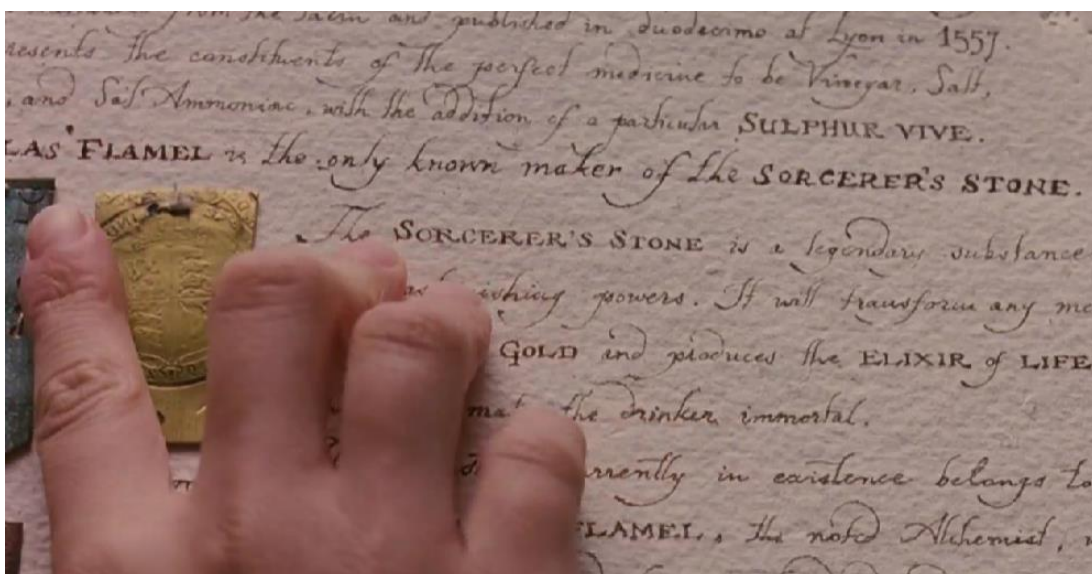 from the Latin and published in duodecimo at Lyon in 1557.
resents the constituents of the perfect medicine to be Vinegar, Salt,
, and Sal Ammoniac, with the addition of a particular SULPHUR VIVE.
LAS FLAMEL is the only known maker of the SORCERER'S STONE.
The SORCERER'S STONE is a legendary substance
ishing powers. It will transform any me
GOLD and produces the ELIXIR of LIFE
mak the drinker immortal.
rrently in existence belongs to
FLAMEL, the noted Alchemist,